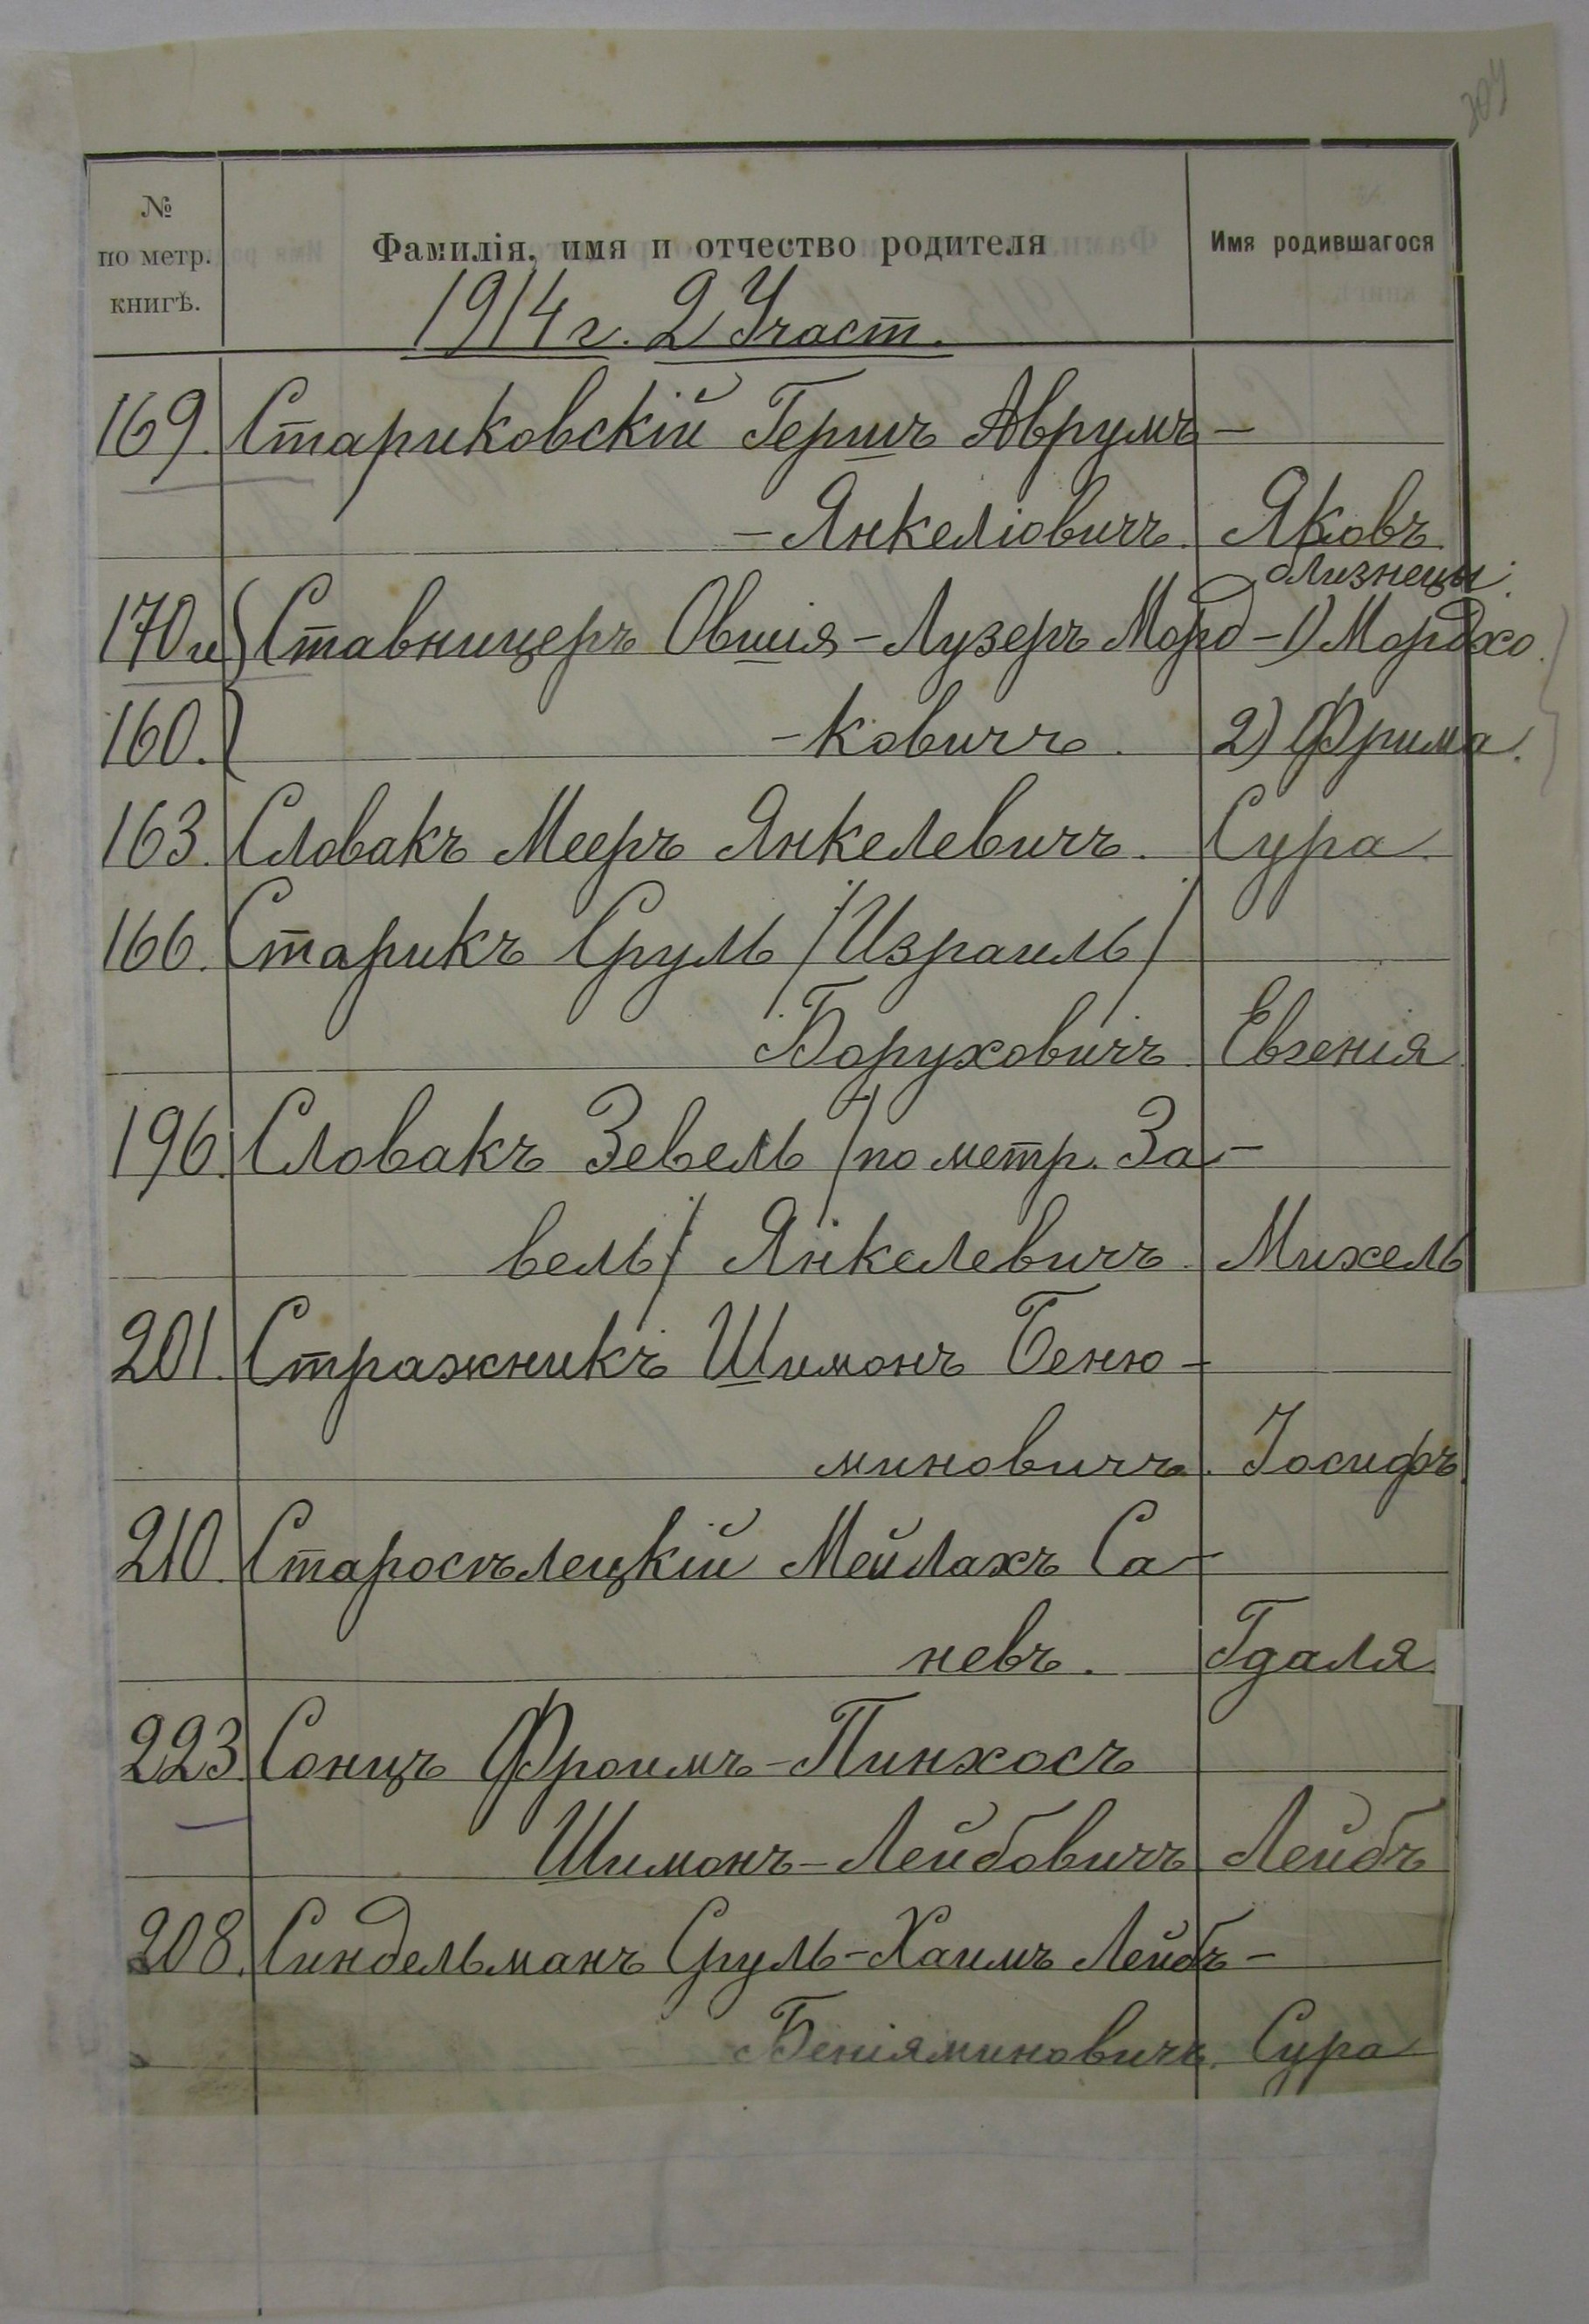 № по метр. книгѣ.
Фамилія, имя и отчество родителя
Имя родившагося
1914 г. 2 Участ.
169. Стариковскій Гершъ Аврумъ-
-Янкеліовичъ. Яковъ
близнецы:
170 и Ставницеръ Овшія-Лузеръ Морд- 1) Мордхо.
160. -ковичъ. 2) Фрима.
163. Словакъ Мееръ Янкелевичъ. Сура.
166. Старикъ Сруль /Израиль/
Боруховичъ. Евгенія.
196. Словакъ Зевель /по метр. За-
вель/ Янкелевичъ. Михель
201. Стражникъ Шимонъ Беню-
миновичъ. Іосифъ.
210. Старосѣлецкій Мейлахъ Са-
невъ. Гдаля.
223. Сонцъ Фроимъ-Пинхосъ
Шимонъ-Лейбовичъ Лейбъ
208. Синдельманъ Сруль-Хаимъ Лейбъ-
Беніяминовичъ. Сура